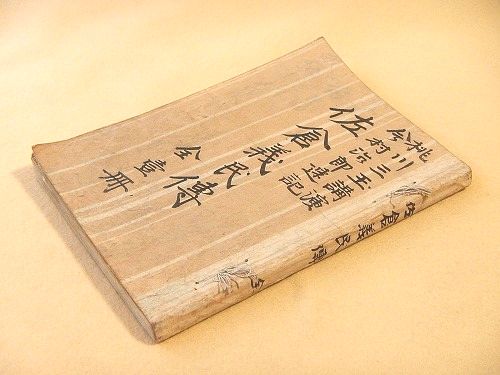 桃川三玉講演
今村次郎速記
佐倉義民傳
全壹冊
佐倉義民傳 全